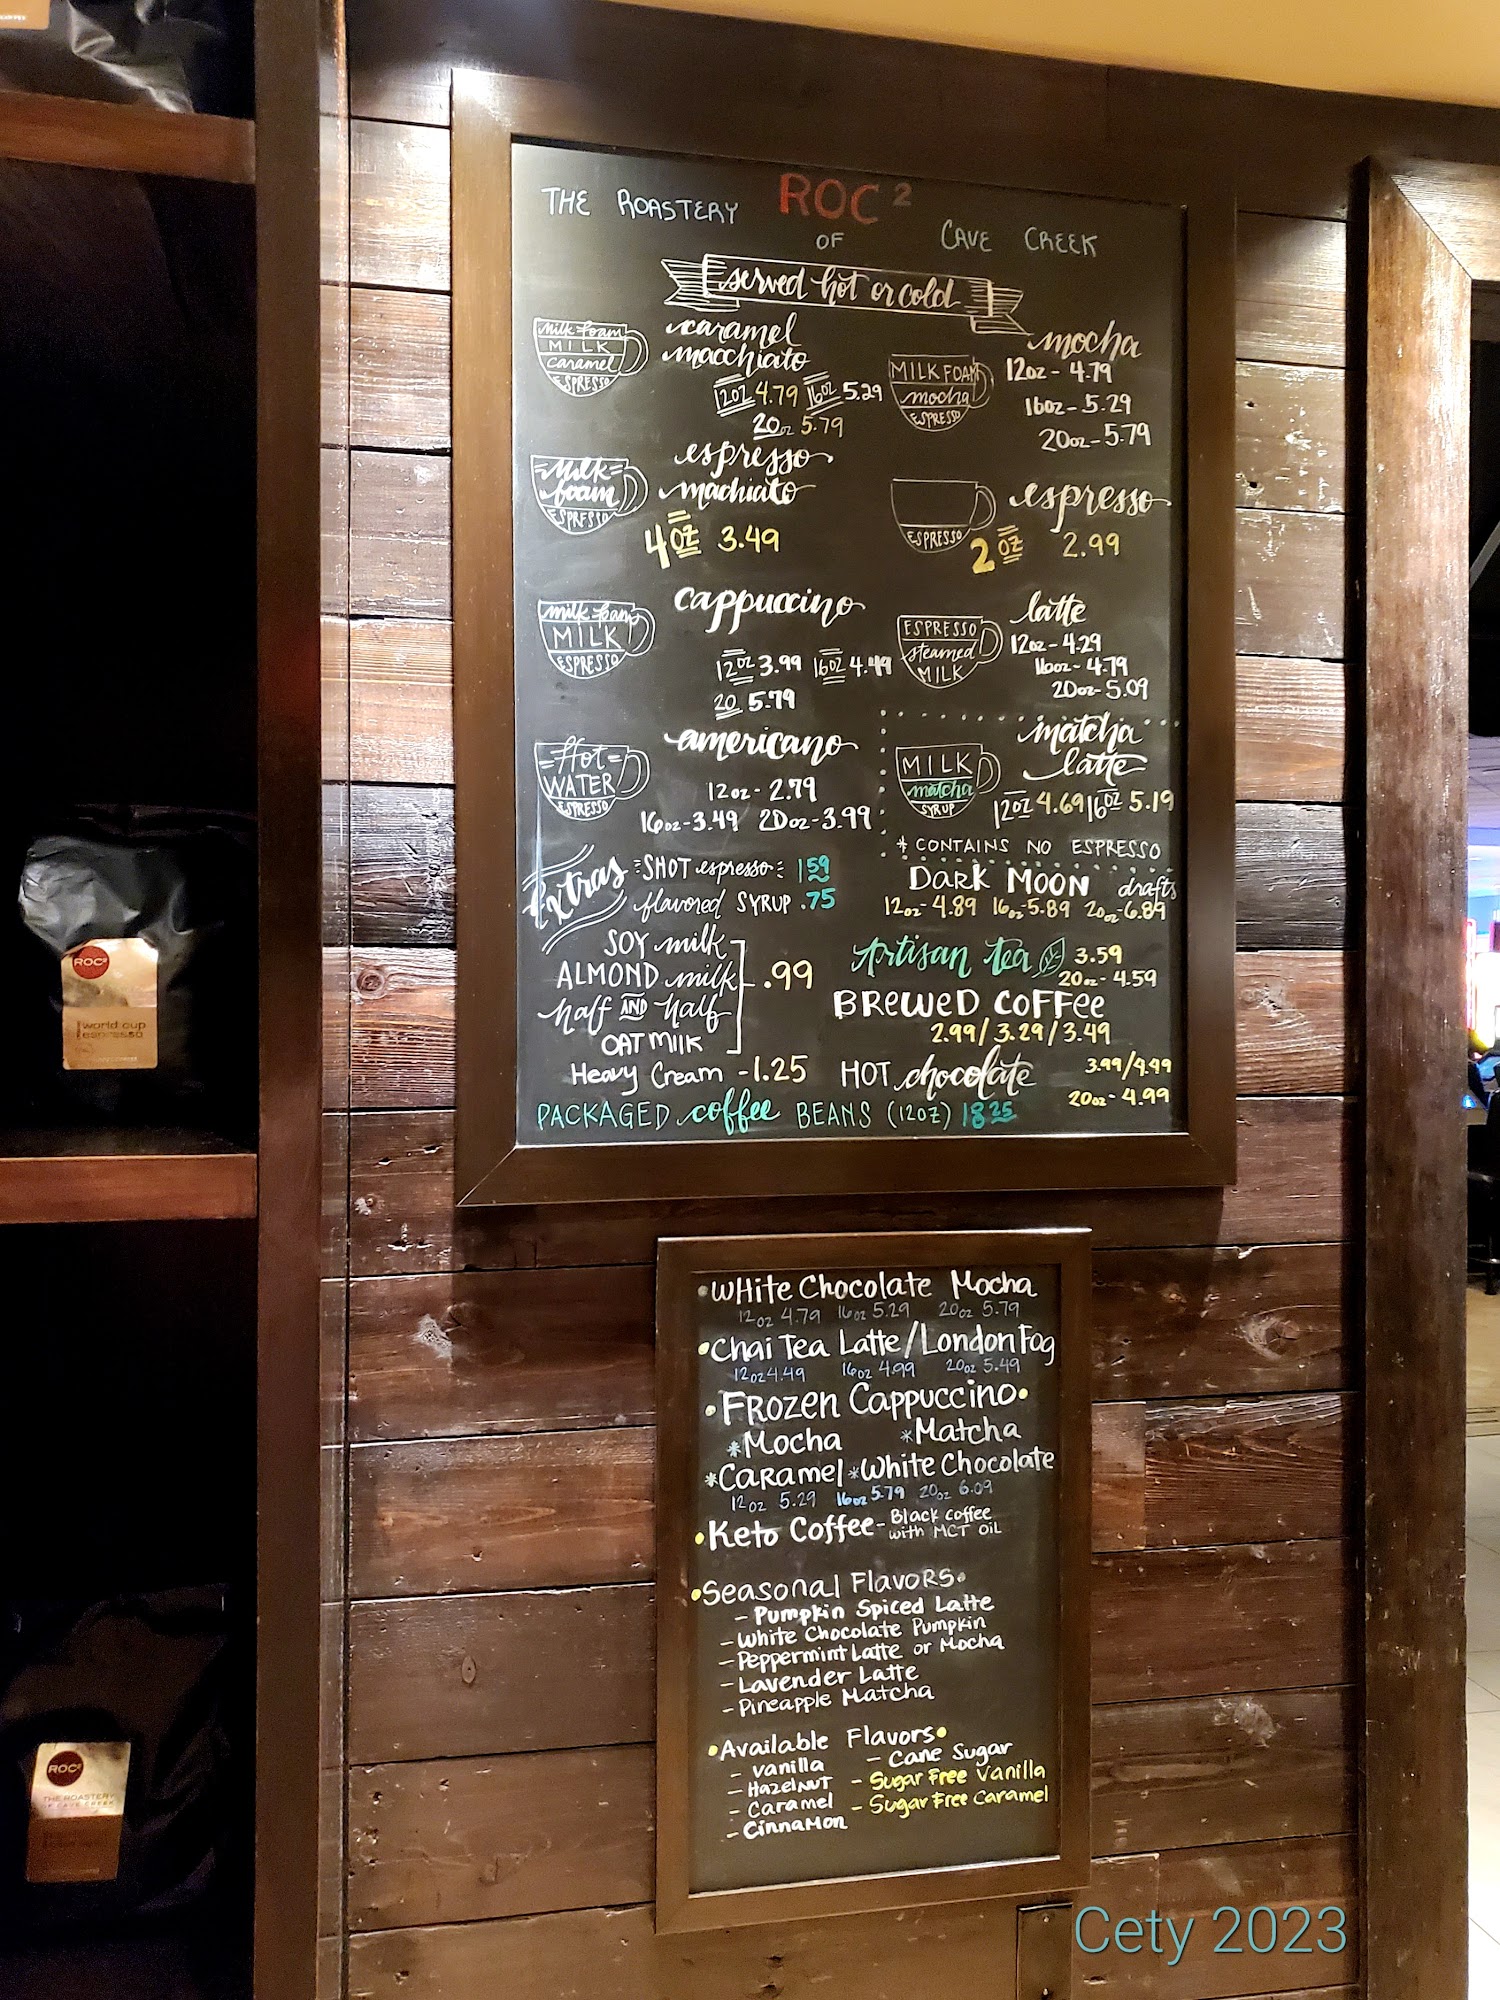 ROC²
THE ROASTERY
OF
CAVE CREEK
served hot or cold
milk foam
MILK
caramel
ESPRESSO
caramel
macchiato
12oz 4.79 16oz 5.29
20oz 5.79
MILK FOAM
mocha
ESPRESSO
mocha
12oz - 4.79
16oz - 5.29
20oz - 5.79
milk
foam
ESPRESSO
espresso
machiato
4oz 3.49
ESPRESSO
espresso
2oz 2.99
milk foam
MILK
ESPRESSO
cappuccino
12oz 3.99 16oz 4.49
20 5.79
ESPRESSO
steamed
MILK
latte
12oz - 4.29
16oz - 4.79
20oz - 5.09
Hot
WATER
ESPRESSO
americano
12oz - 2.79
16oz - 3.49 20oz - 3.99
MILK
matcha
SYRUP
matcha
latte
12oz 4.69 16oz 5.19
* CONTAINS NO ESPRESSO
Extras
SHOT espresso 1 59
flavored SYRUP .75
SOY milk
ALMOND milk
half AND half
OAT MILK
.99
Heavy Cream - 1.25
DARK MOON drafts
12oz - 4.89 16oz 5.89 20oz - 6.89
Artisan tea 3.59
20oz - 4.59
BREWED COFFEE
2.99/3.29/3.49
HOT chocolate 3.99/4.49
20oz - 4.99
PACKAGED coffee BEANS (12OZ) 18 25
• WHite Chocolate Mocha
12oz 4.79 16oz 5.29 20oz 5.79
• Chai Tea Latte/London Fog
12oz 4.49 16oz 4.99 20oz 5.49
• FROZEN CAPPUCCINO •
* Mocha * Matcha
* CARAMEL * White Chocolate
12oz 5.29 16oz 5.79 20oz 6.09
• Keto Coffee - Black coffee
with MCT OIL
• Seasonal FLAVORS •
- Pumpkin Spiced Latte
- White Chocolate Pumpkin
- Peppermint Latte or Mocha
- Lavender Latte
- Pineapple Matcha
• Available Flavors •
- Vanilla - Cane Sugar
- HazelNUT - Sugar Free Vanilla
- Caramel - Sugar Free Caramel
- CinnaMon
ROC²
world cup
espresso
ROC²
THE ROASTERY
OF CAVE CREEK
Cety 2023